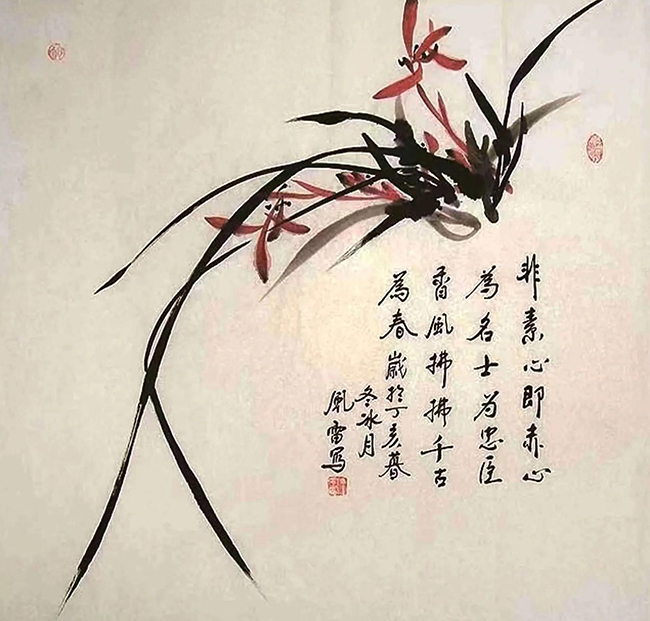 非素心即赤心
為名士为忠臣
蕃風拂拂千古
為春歲於丁亥暮
冬冰月
風雷寫